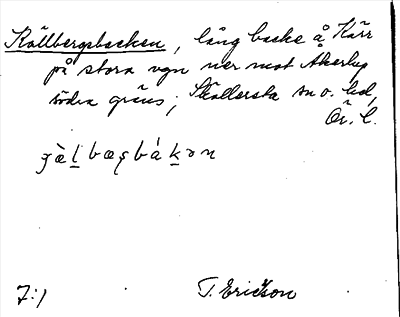 Källbergsbacken, lång backe å Kärr
på stora vgn ner mot Åkerby
södra gräns; Skollersta sn o. hd,
Ör. l.
bæʂbák̠ən
7:1 T. Ericson